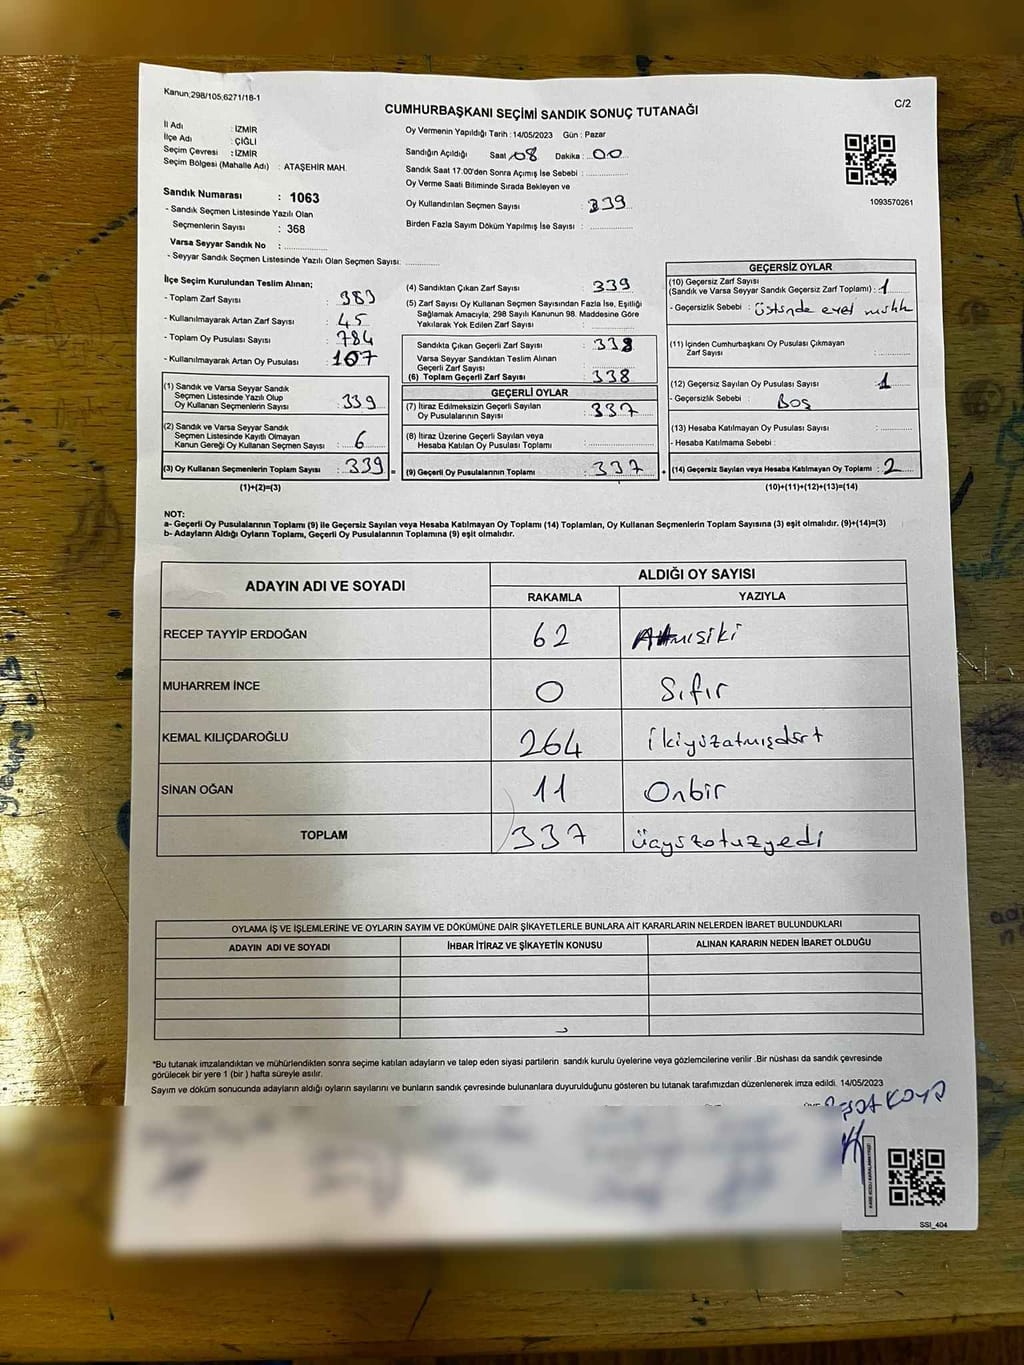 Kanun;298/105,6271/18-1
CUMHURBAŞKANI SEÇİMİ SANDIK SONUÇ TUTANAĞI
C/2
İl Adı : İZMİR
İlçe Adı : ÇİĞLİ
Seçim Çevresi : İZMİR
Seçim Bölgesi (Mahalle Adı) : ATAŞEHİR MAH.
Sandık Numarası : 1063
- Sandık Seçmen Listesinde Yazılı Olan
Seçmenlerin Sayısı : 368
Varsa Seyyar Sandık No :
- Seyyar Sandık Seçmen Listesinde Yazılı Olan Seçmen Sayısı:
Oy Vermenin Yapıldığı Tarih : 14/05/2023 Gün : Pazar
Sandığın Açıldığı Saat : 08 Dakika : 00
Sandık Saat 17.00'den Sonra Açımış İse Sebebi :
Oy Verme Saati Bitiminde Sırada Bekleyen ve
Oy Kullandırılan Seçmen Sayısı : 339
Birden Fazla Sayım Döküm Yapılmış İse Sayısı :
1093570261
İlçe Seçim Kurulundan Teslim Alınan;
- Toplam Zarf Sayısı : 383
- Kullanılmayarak Artan Zarf Sayısı : 45
- Toplam Oy Pusulası Sayısı : 784
- Kullanılmayarak Artan Oy Pusulası : 107
(1) Sandık ve Varsa Seyyar Sandık
Seçmen Listesinde Yazılı Olup
Oy Kullanan Seçmenlerin Sayısı : 339
(2) Sandık ve Varsa Seyyar Sandık
Seçmen Listesinde Kayıtlı Olmayan
Kanun Gereği Oy Kullanan Seçmen Sayısı : 6
(3) Oy Kullanan Seçmenlerin Toplam Sayısı : 339 =
(1)+(2)=(3)
(4) Sandıktan Çıkan Zarf Sayısı : 339
(5) Zarf Sayısı Oy Kullanan Seçmen Sayısından Fazla İse, Eşitliği
Sağlamak Amacıyla; 298 Sayılı Kanunun 98. Maddesine Göre
Yakılarak Yok Edilen Zarf Sayısı :
Sandıkta Çıkan Geçerli Zarf Sayısı : 338
Varsa Seyyar Sandıktan Teslim Alınan
Geçerli Zarf Sayısı :
(6) Toplam Geçerli Zarf Sayısı : 338
GEÇERLİ OYLAR
(7) İtiraz Edilmeksizin Geçerli Sayılan
Oy Pusulalarının Sayısı : 337
(8) İtiraz Üzerine Geçerli Sayılan veya
Hesaba Katılan Oy Pusulası Toplamı :
(9) Geçerli Oy Pusulalarının Toplamı : 337 +
GEÇERSİZ OYLAR
(10) Geçersiz Zarf Sayısı
(Sandık ve Varsa Seyyar Sandık Geçersiz Zarf Toplamı) : 1
- Geçersizlik Sebebi : üstünde evet
(11) İçinden Cumhurbaşkanı Oy Pusulası Çıkmayan
Zarf Sayısı :
(12) Geçersiz Sayılan Oy Pusulası Sayısı : 1
- Geçersizlik Sebebi : Boş
(13) Hesaba Katılmayan Oy Pusulası Sayısı :
- Hesaba Katılmama Sebebi :
(14) Geçersiz Sayılan veya Hesaba Katılmayan Oy Toplamı : 2
(10)+(11)+(12)+(13)=(14)
NOT:
a- Geçerli Oy Pusulalarının Toplamı (9) ile Geçersiz Sayılan veya Hesaba Katılmayan Oy Toplamı (14) Toplamları, Oy Kullanan Seçmenlerin Toplam Sayısına (3) eşit olmalıdır. (9)+(14)=(3)
b- Adayların Aldığı Oyların Toplamı, Geçerli Oy Pusulalarının Toplamına (9) eşit olmalıdır.
ADAYIN ADI VE SOYADI
ALDIĞI OY SAYISI
RAKAMLA YAZIYLA
RECEP TAYYİP ERDOĞAN 62 Altmışiki
MUHARREM İNCE 0 Sıfır
KEMAL KILIÇDAROĞLU 264 ikiyüzatmışdört
SİNAN OĞAN 11 Onbir
TOPLAM 337 üçyüzotuzyedi
OYLAMA İŞ VE İŞLEMLERİNE VE OYLARIN SAYIM VE DÖKÜMÜNE DAİR ŞİKAYETLERLE BUNLARA AİT KARARLARIN NELERDEN İBARET BULUNDUKLARI
ADAYIN ADI VE SOYADI İHBAR İTİRAZ VE ŞİKAYETİN KONUSU ALINAN KARARIN NEDEN İBARET OLDUĞU
*Bu tutanak imzalandıktan ve mühürlendikten sonra seçime katılan adayların ve talep eden siyasi partilerin sandık kurulu üyelerine veya gözlemcilerine verilir .Bir nüshası da sandık çevresinde
görülecek bir yere 1 (bir ) hafta süreyle asılır.
Sayım ve döküm sonucunda adayların aldığı oyların sayılarını ve bunların sandık çevresinde bulunanlara duyurulduğunu gösteren bu tutanak tarafımızdan düzenlenerek imza edildi. 14/05/2023
SSI_404